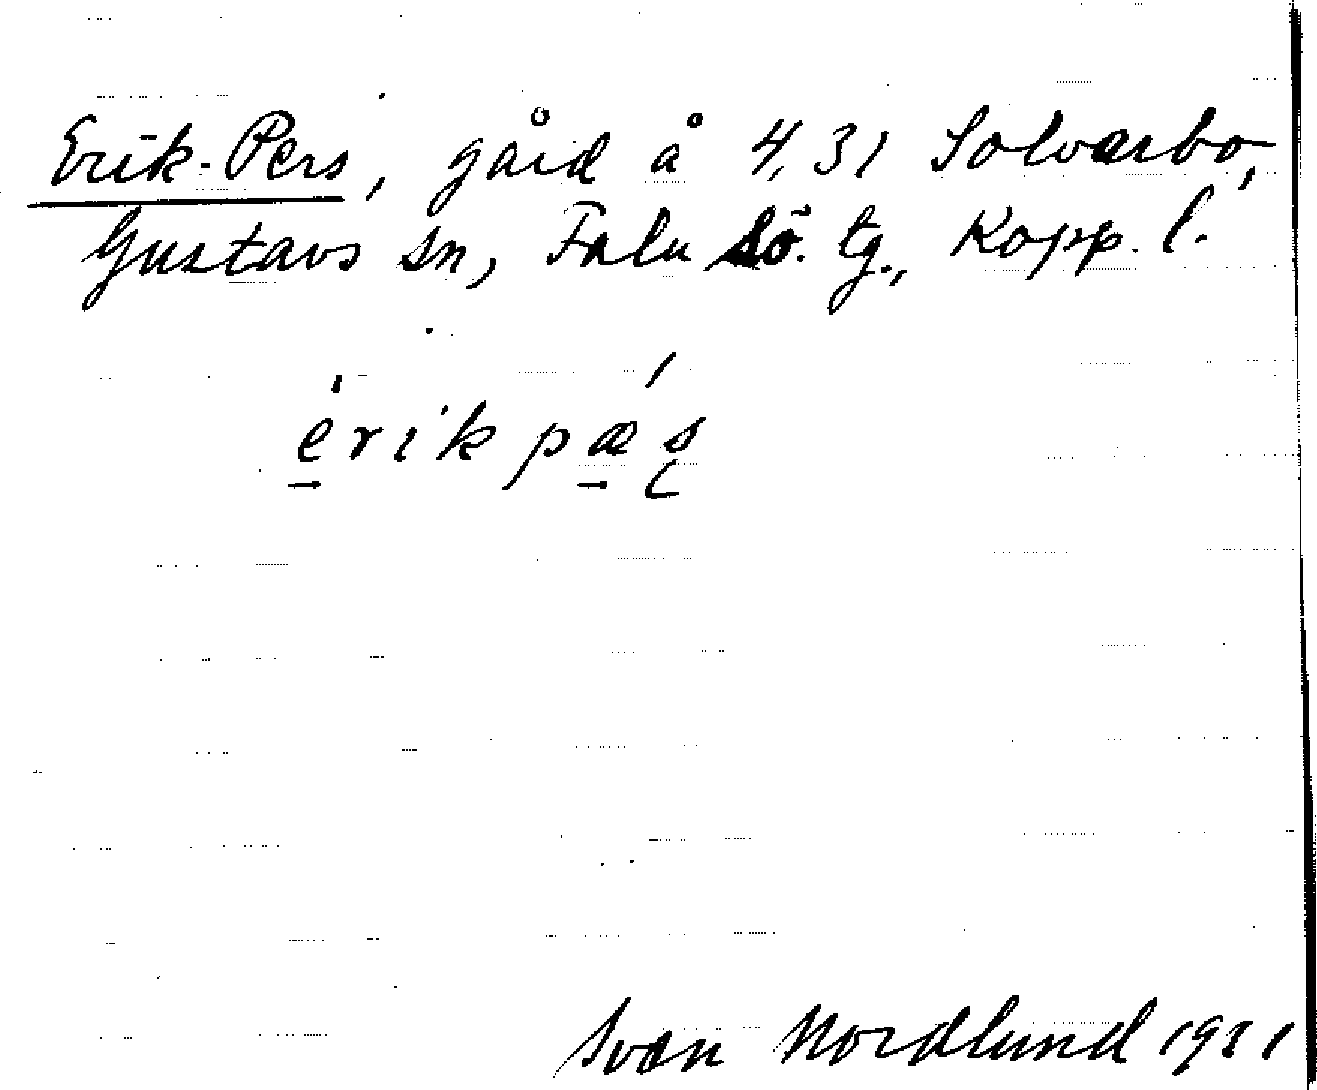 Erik-Pers, gård å 4,31 Solvarbo,
Gustavs sn, Falu Sö. tg., Kopp. l.
érikpæ´s
Ivan Nordlund 1931